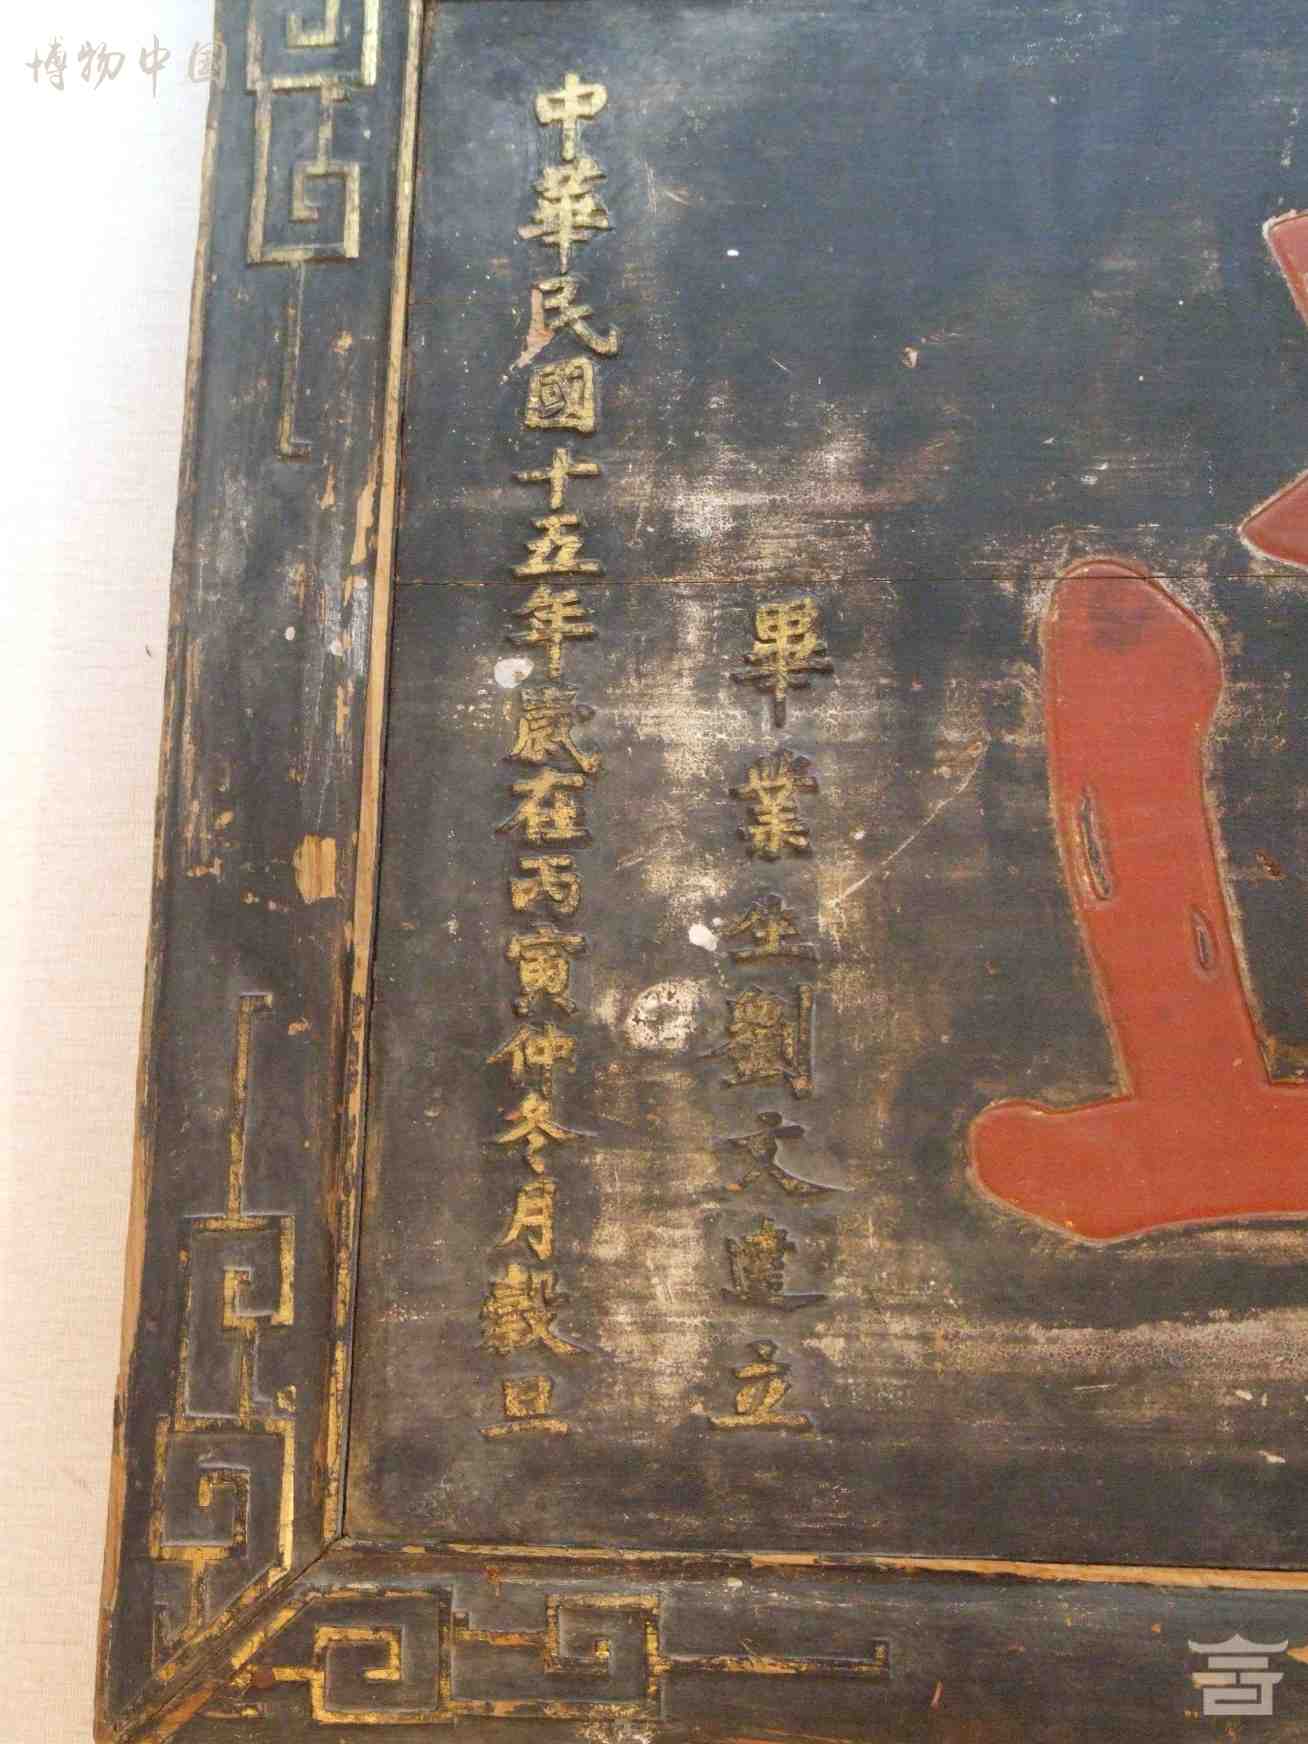 博物中国
畢業生劉文建立
中華民國十五年歲在丙寅仲冬月穀旦